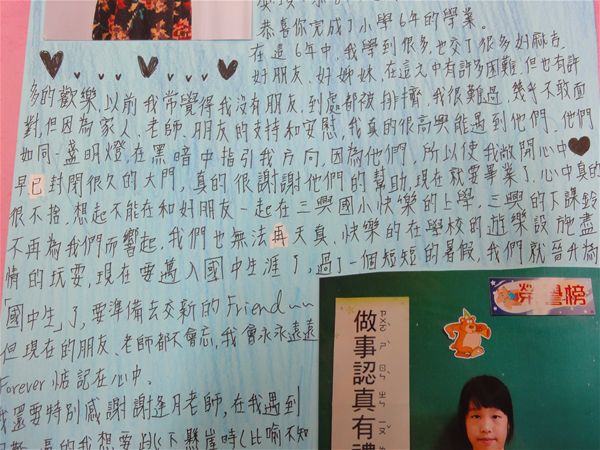 恭喜你完成了小學6年的學業。
在這6年中,我學到很多,也交了很多好麻吉、
好朋友、好姊妹,在這之中有許多困難,但也有許
多的歡樂,以前我常覺得我沒有朋友,到處都被排擠,我很難過,幾乎不敢面
對,但因為家人、老師、朋友的支持和安慰,我真的很高興能遇到他們、他們
如同一盞明燈,在黑暗中指引我方向,因為他們,所以使我敞開心中
早已封閉很久的大門,真的很謝謝他們的幫助,現在就要畢業了,心中真的
很不捨,想起不能在和好朋友一起在三興國小快樂的上學,三興的下課鈴
不再為我們而響起,我們也無法再天真、快樂的在學校的遊樂設施盡
情的玩耍,現在要邁入國中生涯了,過了一個短短的暑假,我們就晉升為
「國中生」了,要準備去交新的Friend~~
但現在的朋友、老師都不會忘,我會永永遠遠
Forever惦記在心中。
我還要特別感謝謝逢月老師,在我遇到
的我想要跳下懸崖時(比喻不知
榮譽榜
做事認真有禮
ㄗㄨㄛˋ ㄕˋ ㄖㄣˋ ㄓㄣ ㄧㄡˇ